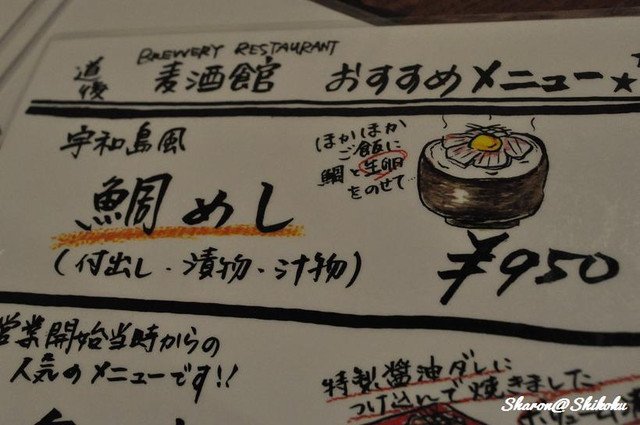 BREWERY RESTAURANT
道後 麦酒館 おすすめメニュー★
宇和島風
鯛めし
(付出し・漬物・汁物)
ほかほか
ご飯に
鯛と生卵
をのせて
¥950
営業開始当時からの
人気のメニューです!!
特製醤油ダレに
つけ込んで焼きました
Sharon@Shikoku